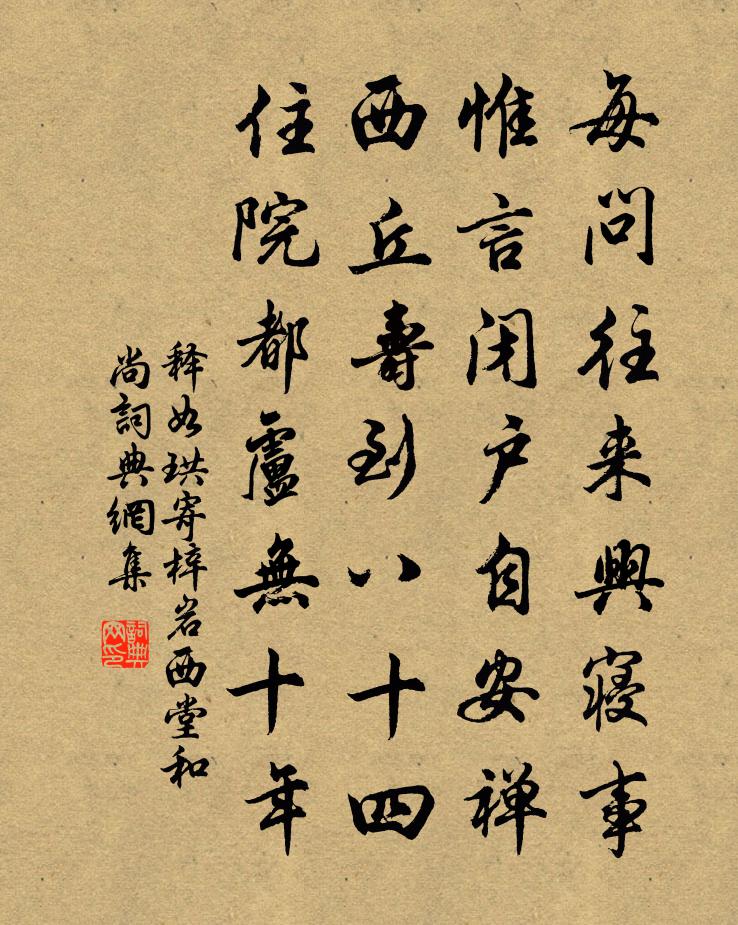 每問往来興寝事
惟言闭户自安禅
西丘壽到八十四
住院都盧無十年
释如珙寄梓岩西堂和
尚詞典網集
詞典
网印